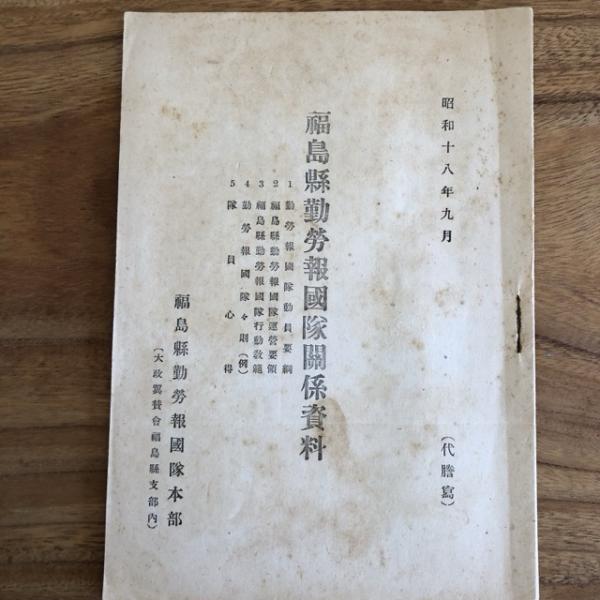 昭和十八年九月
(代謄寫)
福島縣勤勞報國隊關係資料
1 勤勞報國隊動員要綱
2 福島縣勤勞報國隊運營要領
3 福島縣勤勞報國隊行動敎範
4 勤勞報國隊々則(例)
5 隊員心得
福島縣勤勞報國隊本部
(大政翼賛會福島縣支部內)